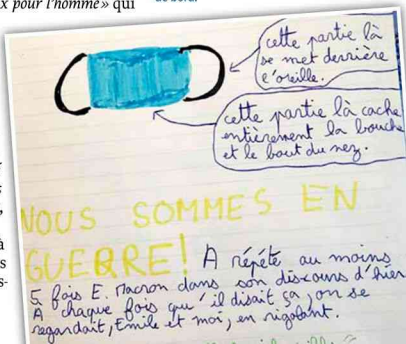 x pour l'homme» qui
cette partie là
se met derrière
l'oreille.
cette partie là cache
entièrement la bouche
et le bout du nez.
NOUS SOMMES EN
GUERRE! A répété au moins
5 fois E. Macron dans son discours d'hier
A chaque fois qu'il disait ça, on se
regardait, Emile et moi, en rigolant.